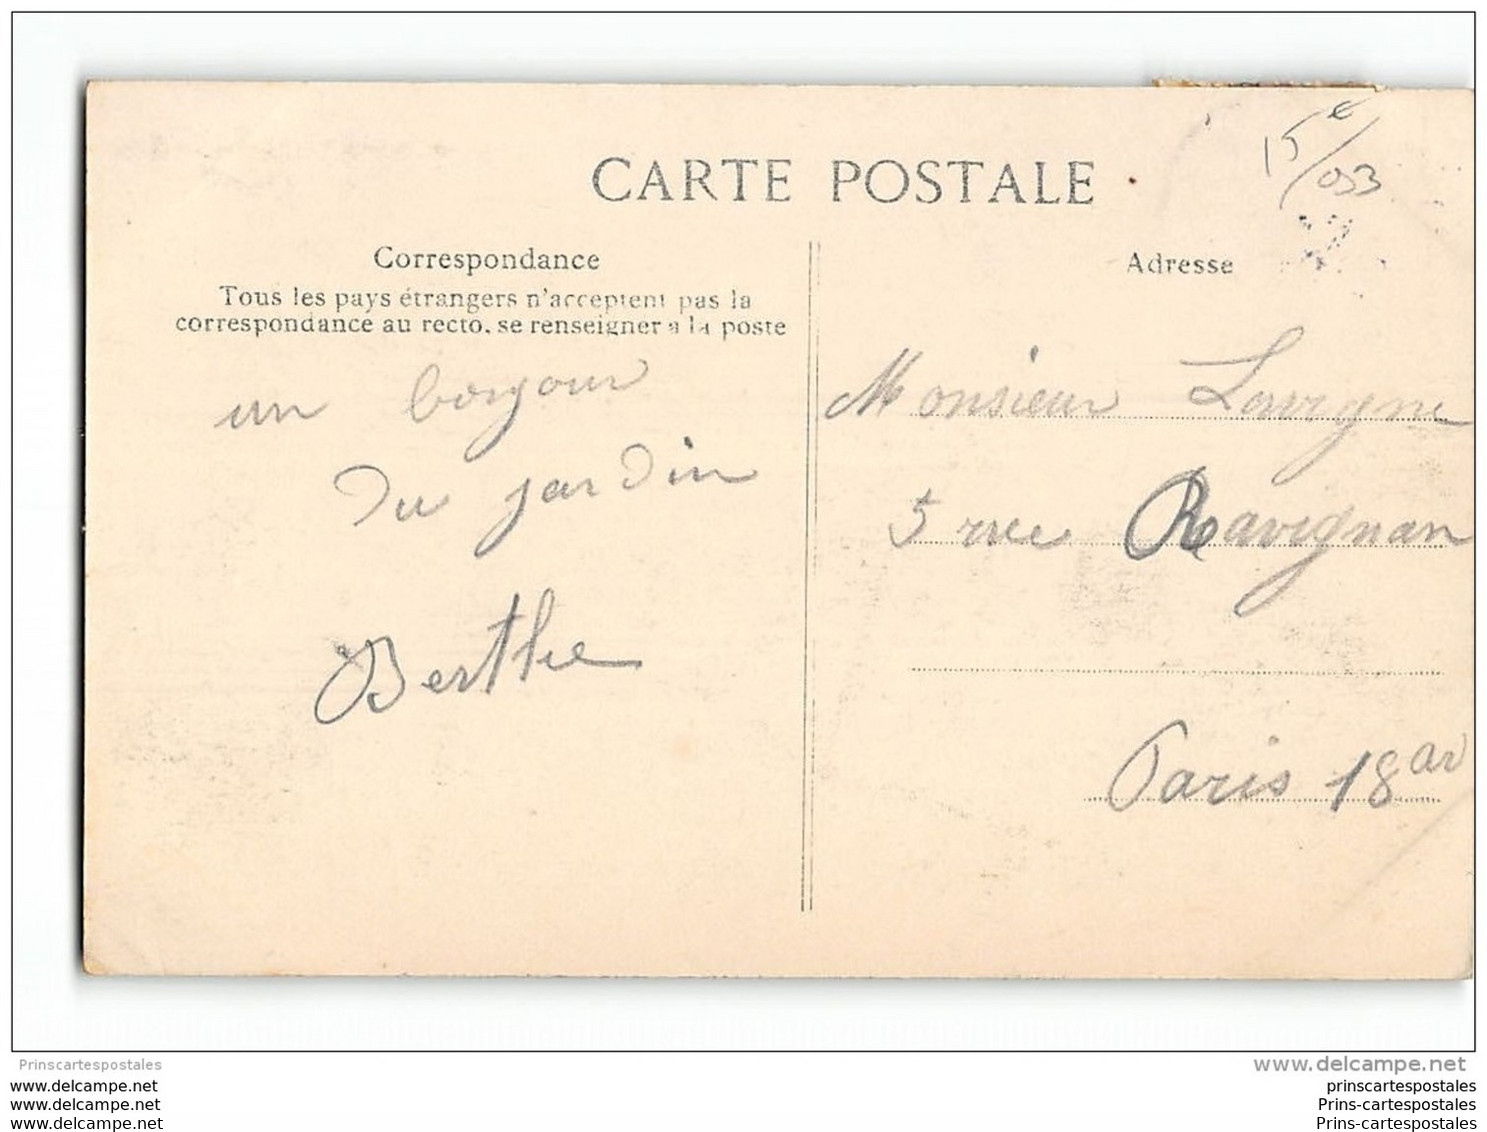 CARTE POSTALE
15€/053
Correspondance
Tous les pays étrangers n'acceptent pas la
correspondance au recto, se renseigner à la poste
un bonjour
du jardin
Berthe
Adresse
Monsieur Lavigne
5 rue Ravignan
Paris 18 ar
Prinscartespostales
www.delcampe.net
www.delcampe.net
www.delcampe.net
www.delcampe.net
prinscartespostales
Prins-cartespostales
Prins-cartespostales